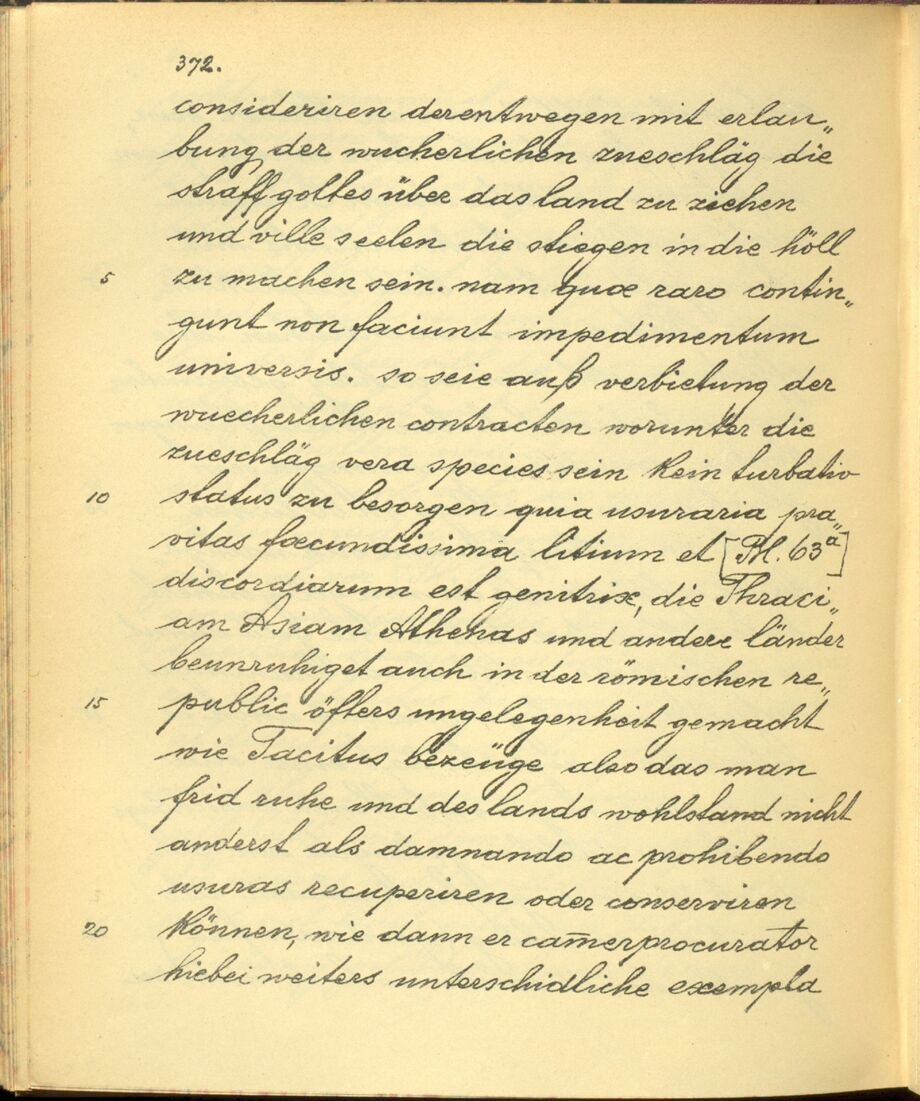 372.
consideriren derentwegen mit erlau„
bung der wucherlichen zueschläg die
straff gottes über das land zu ziehen
und ville seelen die stiegen in die höll
5 zu machen sein. nam quæ raro contin„
gunt non faciunt impedimentum
universis. so seie auß verbietung der
wuecherlichen contracten worunter die
zueschläg vera species sein kein turbatio
10 status zu besorgen quia usuraria pra„
vitas fœcundissima litium et [Bl. 63a]
discordiarum est genitrix, die Thraci„
am Asiam Athenas und andere länder
beunruhiget auch in der römischen re„
15 public öfters ungelegenheit gemacht
wie Tacitus bezeüge also das man
frid ruhe und des lands wohlstand nicht
anderst als damnando ac prohibendo
usuras recuperiren oder conserviren
20 können, wie dann er cam̄erprocurator
hiebei weiters unterschidliche exempla